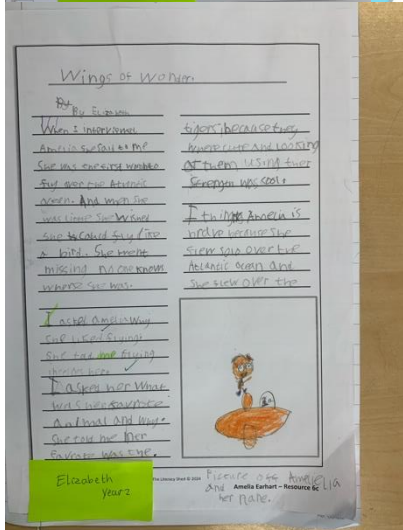 Wings of Wonder
By
By Elizabeth
When I interviewed
Amelia she said to me
She was the first
fly over the Atlantic
. And when she
was little she wished
she could fly like
a bird. She went
missing no one knows
where she was.
I asked amelia why
She liked flying.
She told me flying
her.
I asked her what
was her favourite
animal and why.
She told me her
was the.
tigers because they
were cute and looking
at them using their
was cool.
I think Amelia is
brave because she
flew solo over the
Atlantic ocean and
She flew over the
Elizabeth
Year 2
The Literacy Shed © 2024
Amelia Earhart – Resource 6c
Picture off Amellia
and her Plane.